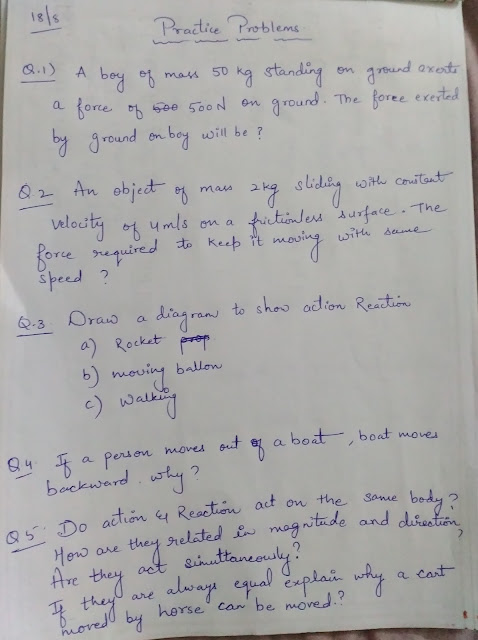 18/8
Practice Problems
Q.1) A boy of mass 50 kg standing on ground exerts
a force of 500 500N on ground. The force exerted
by ground on boy will be ?
Q 2 An object of mass 2kg sliding with constent
velocity of 4m/s on a frictionless surface. The
force required to keep it moving with same
speed ?
Q.3. Draw a diagram to show action Reaction
a) Rocket prop
b) moving ballon
c) Walking
Q4. If a person moves out of a boat, boat moves
backward. why ?
Q5: Do action & Reaction act on the same body ?
How are they related in magnitude and direction,
Are they act simultaneously ? ?
If they are always equal explain why a cart
moved by horse can be moved.?